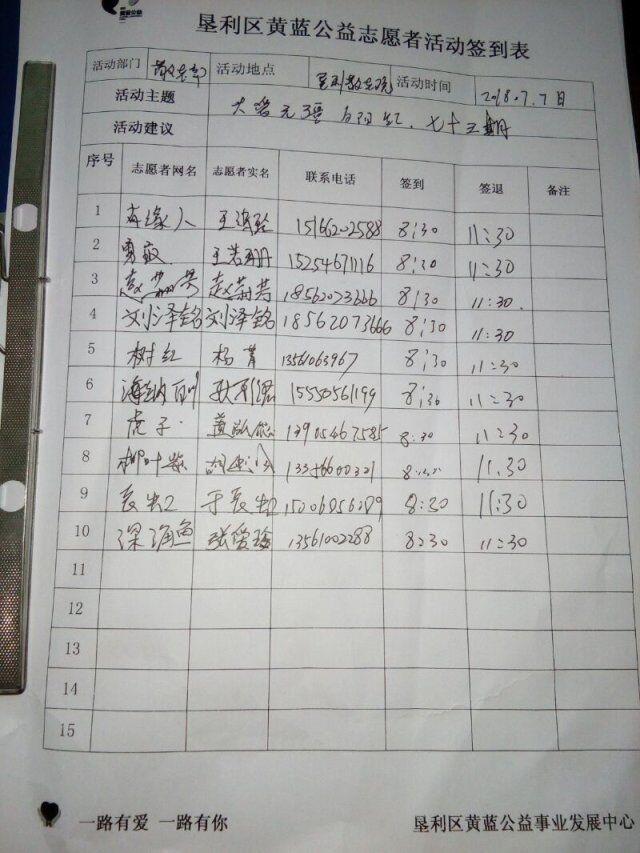 垦利区黄蓝公益志愿者活动签到表
活动部门 敬老部 活动地点 垦利敬老院 活动时间 2018.7.7日
活动主题 大爱无疆 夕阳红 七十三期
活动建议
序号 志愿者网名 志愿者实名 联系电话 签到 签退 备注
1 15166202588 8:30 11:30
2 15254671116 8:30 11:30
3 赵荔芳 赵荔芳 18562073666 8:30 11:30
4 刘泽铭 刘泽铭 18562073666 8:30 11:30
5 树红 杨菁 13561063967 8:30 11:30
6 海纳百川 15550561199 8:30 11:30
7 虎子 13905467585 8:30 11:30
8 柳叶紫 11:30
9 8:30 11:30
10 深海鱼 13561002288 8:30 11:30
11
12
13
14
15
一路有爱 一路有你 垦利区黄蓝公益事业发展中心